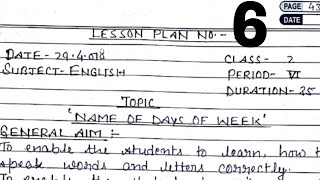 LESSON PLAN NO.- 6
PAGE 43
DATE
DATE- 29.4.018
CLASS- 2
SUBJECT- ENGLISH
PERIOD- VI
DURATION- 35
TOPIC
'NAME OF DAYS OF WEEK'
GENERAL AIM :-
To enable the students to learn, how t
speak words and letters correctly.
To enable the